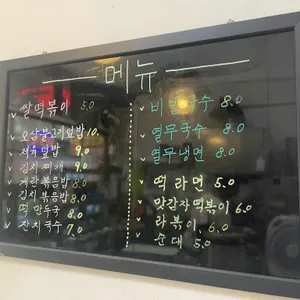 메뉴
쌀떡볶이 5.0
오삼불고기덮밥 10.
제육덮밥 9.0
김치찌개 9.0
계란볶음밥 8.0
김치볶음밥 8.0
떡만두국 8.0
잔치국수 7.0
비빔국수 8.0
열무국수 8.0
열무냉면 8.0
떡라면 5.0
맛감자떡볶이 6.0
라볶이 6.0
순대 5.0